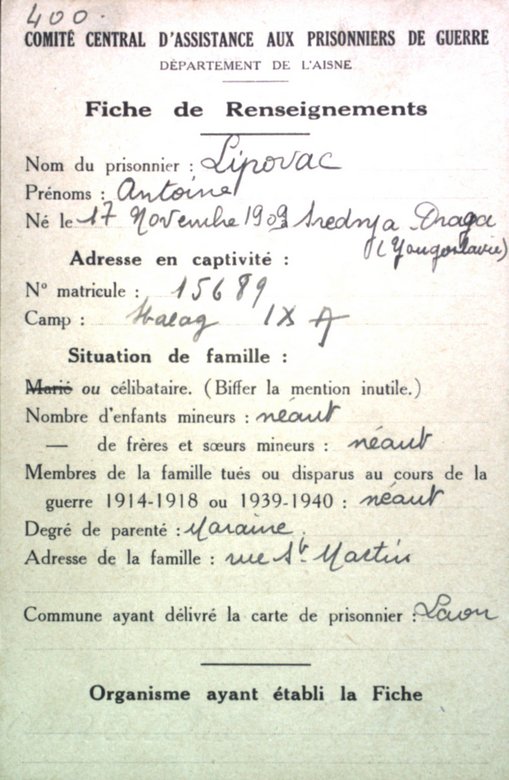 400.
COMITÉ CENTRAL D'ASSISTANCE AUX PRISONNIERS DE GUERRE
DÉPARTEMENT DE L'AISNE
Fiche de Renseignements
Nom du prisonnier : Lipovac
Prénoms : Antoine
Né le 17 Novembre 1909 Srednya Draga
(Yougoslavie)
Adresse en captivité :
N° matricule : 15689
Camp : Stalag IX A
Situation de famille :
Marié ou célibataire. (Biffer la mention inutile.)
Nombre d'enfants mineurs : néant
— de frères et sœurs mineurs : néant
Membres de la famille tués ou disparus au cours de la
guerre 1914-1918 ou 1939-1940 : néant
Degré de parenté : Maraine
Adresse de la famille : rue St Martin
Commune ayant délivré la carte de prisonnier : Laon
Organisme ayant établi la Fiche